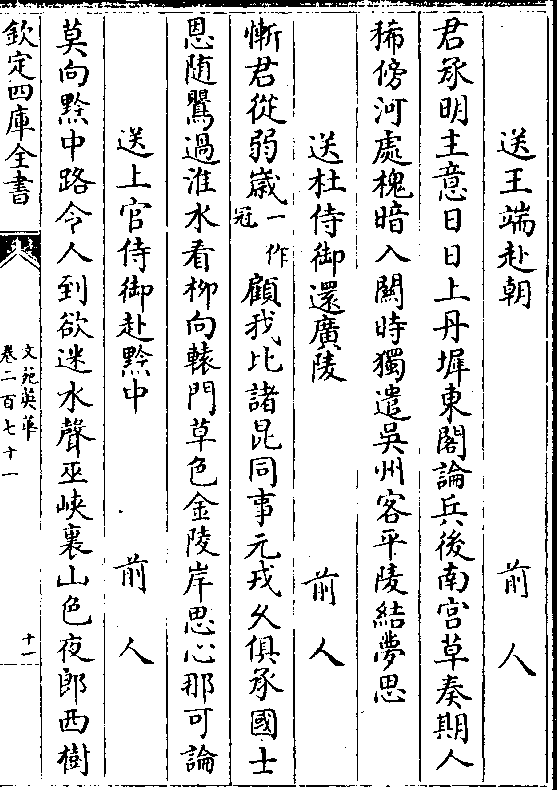 送王端赴朝　前人
君承明主意日日上丹墀東閣論兵後南宮草奏期人
稀傍河處槐暗入闗時獨遣吳州客平陵結夢思
送杜侍御還廣陵　前人
慚君從弱嵗一作冠顧我比諸昆同事元戎久俱承國士
恩随鸎過淮水看柳向轅門草色金陵岸思心那可論
送上官侍御赴黔中　前人
莫向黔中路令人到欲迷水聲巫峽裏山色夜郎西樹
欽定四庫全書
文苑英華
卷二百七十一
十一